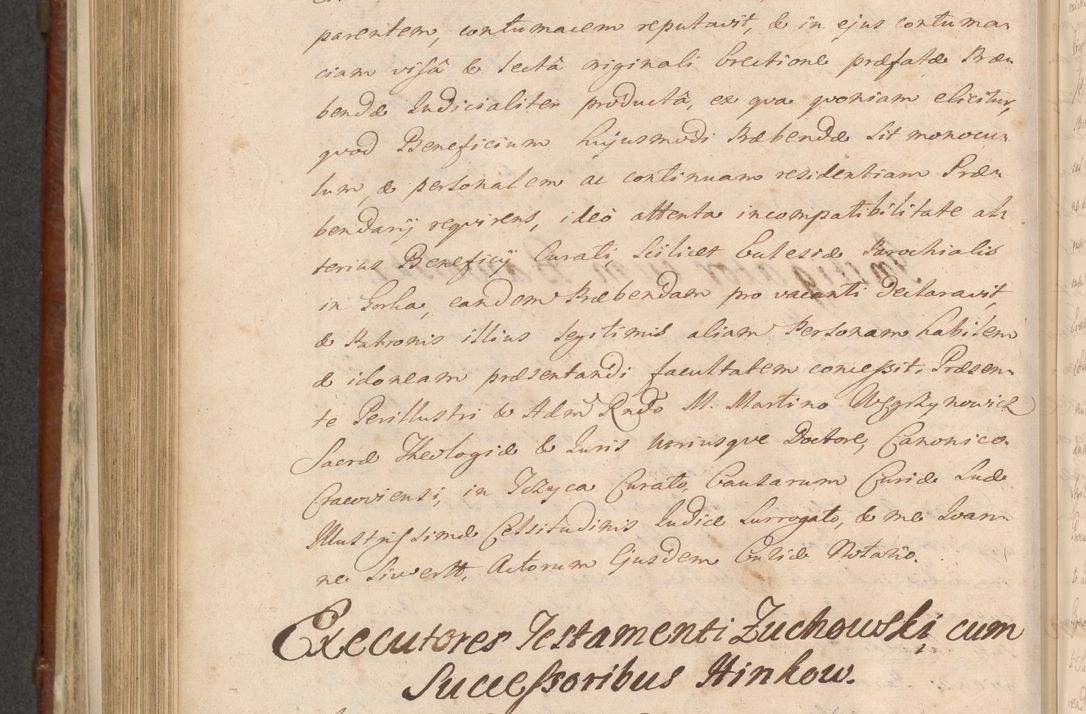 parentem, contumacem reputavit, & in ejus contuma-
ciam visâ & lectâ originali Erectione præfatæ Præ-
bendæ Judicialiter productâ, ex qua quoniam elicitur,
quod Beneficium hujusmodi Præbendæ sit monocu-
lum, & personalem ac continuam residentiam Præ-
bendarij requirens, ideò attenta incompatibilitate al-
terius Beneficij Curati, scilicet Ecclesiæ Parochialis
in Gorka, eandem Præbendam pro vacanti declaravit,
& Patronis illius legitimis aliam Personam habilem
& idoneam præsentandi facultatem concessit. Præsen-
te Perillustri & Adm Rndo M. Martino Węgrzynowicz
Sacræ Theologiæ & Juris Utriusque Doctore, Canonico
Cracoviensi, in Tczyca Curato, Causarum Curiæ Suæ
Illustrissimæ Celsitudinis Judice Surrogato, & me Joan-
ne Siwertt, Actorum Ejusdem Curiæ Notario.
Executores Testamenti Zuchowski cum
Successoribus Hinkow.